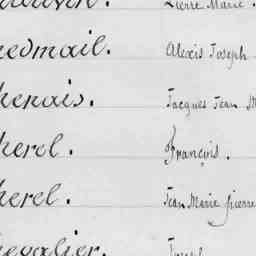 Pierre Marie
nedmail. Alexis Joseph
henais. Jacques Jean M
herel. François.
herel. Jean Marie pierre
hevalier. Joseph